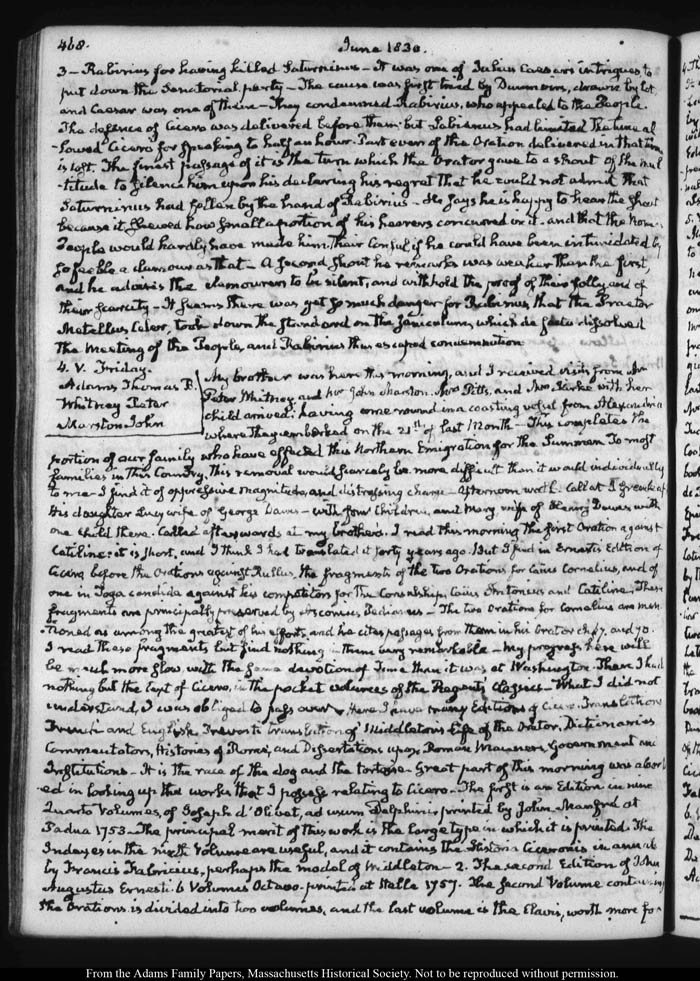 468.
June 1830.
3 – Rabirius for having killed Saturninus – It was one of Julius Caesar's intrigues to
put down the Senatorial party – The cause was first tried by Duumvirs, drawn by lot
and Caesar was one of them – They condemned Rabirius, who appealed to the People.
The defence of Cicero was delivered before them; but Labienus had limited the time al
-lowed Cicero for speaking to half an hour. Part even of the Oration delivered in that time
is lost. The finest passage of it is the turn which the Orator gave to a shout of the mul
-titude to silence him upon his declaring his regret that he could not admit that
Saturninus had fallen by the hand of Rabirius – He says he is happy to hear the shout
because it shewed how small a portion of his hearers concurred in it. and that the Roman
People would hardly have made him their Consul if he could have been intimidated by
so feeble a clamour as that – A second shout he remarks was weaker than the first,
and he advises the clamourers to be silent, and withhold the proof of their folly and of
their scarcity – It seems there was yet so much danger for Rabirius that the Praetor
Metellus Celer, took down the standard on the Janiculum, which de facto dissolved
the meeting of the People, and Rabirius thus escaped condemnation
4. V. Friday.
Adams Thomas B.
Whitney Peter
Marston John
My brother was here this morning, and I received visits from Mr
Peter Whitney and Mr John Marston. Mrs Pitts, and Mrs Parke with her
child arrived; having come round in a coasting vessel from Alexandria
where they embarked on the 21st of last Month – This completes the
portion of our family who have effected this Northern Emigration for the Summer. To most
families in this Country, this removal would scarcely be more difficult than it would individually
to me – I find it of oppressive magnitude, and distressing charge – Afternoon walk. Call at J Greenleaf's
His daughter Lucy wife of George Dawes – with four Children, and Mary, wife of Henry Dawes with
one child there. Called afterwards at my brother's. I read this morning the first Oration against
Catiline: it is short, and I think I had translated it forty years ago. But I find in Ernesti's Edition of
Cicero before the Orations against Rullus, the fragments of the two Orations for Caius Cornelius, and of
one in Toga candida against his competitors for the Consulship, Caius Antonius and Catiline. These
fragments are principally preserved by Asconius Pedianus – The two Orations for Cornelius are men
-tioned as among the greatest of his efforts, and he cites passages from them in his Orator ch. 67, and 70.
I read these fragments but find nothing in them very remarkable – My progress here will
be much more slow with the same devotion of Time than it was at Washington. There I had
nothing but the text of Cicero, in the pocket volumes of the Regent's Classics – What I did not
understand, I was obliged to pass over. Here I have many Editions of Cicero. Translations
French and English, translation of Middleton's Life of the Orator, Dictionaries
Commentators, Histories of Rome, and Dissertations upon Roman Manners, Government and
Institutions – It is the race of the dog and the tortoise – Great part of this morning was absorb
-ed in looking up the works that I possess relating to Cicero – The first is an Edition in nine
Quarto Volumes, of Joseph d'Olivet, ad usum Delphini printed by John Manfré at
Padua 1753 – The principal merit of this work is the large type in which it is printed. The
Indexes in the ninth Volume are useful, and it contains the Historia Ciceronis in annals
by Francis Fabricius, perhaps the model of Middleton – 2. The second Edition of John
Augustus Ernesti. 6 Volumes Octavo. printed at Halle 1757. The second Volume containing
the Orations is divided into two volumes, and the last volume is the Clavis, worth more for
From the Adams Family Papers, Massachusetts Historical Society. Not to be reproduced without permission.